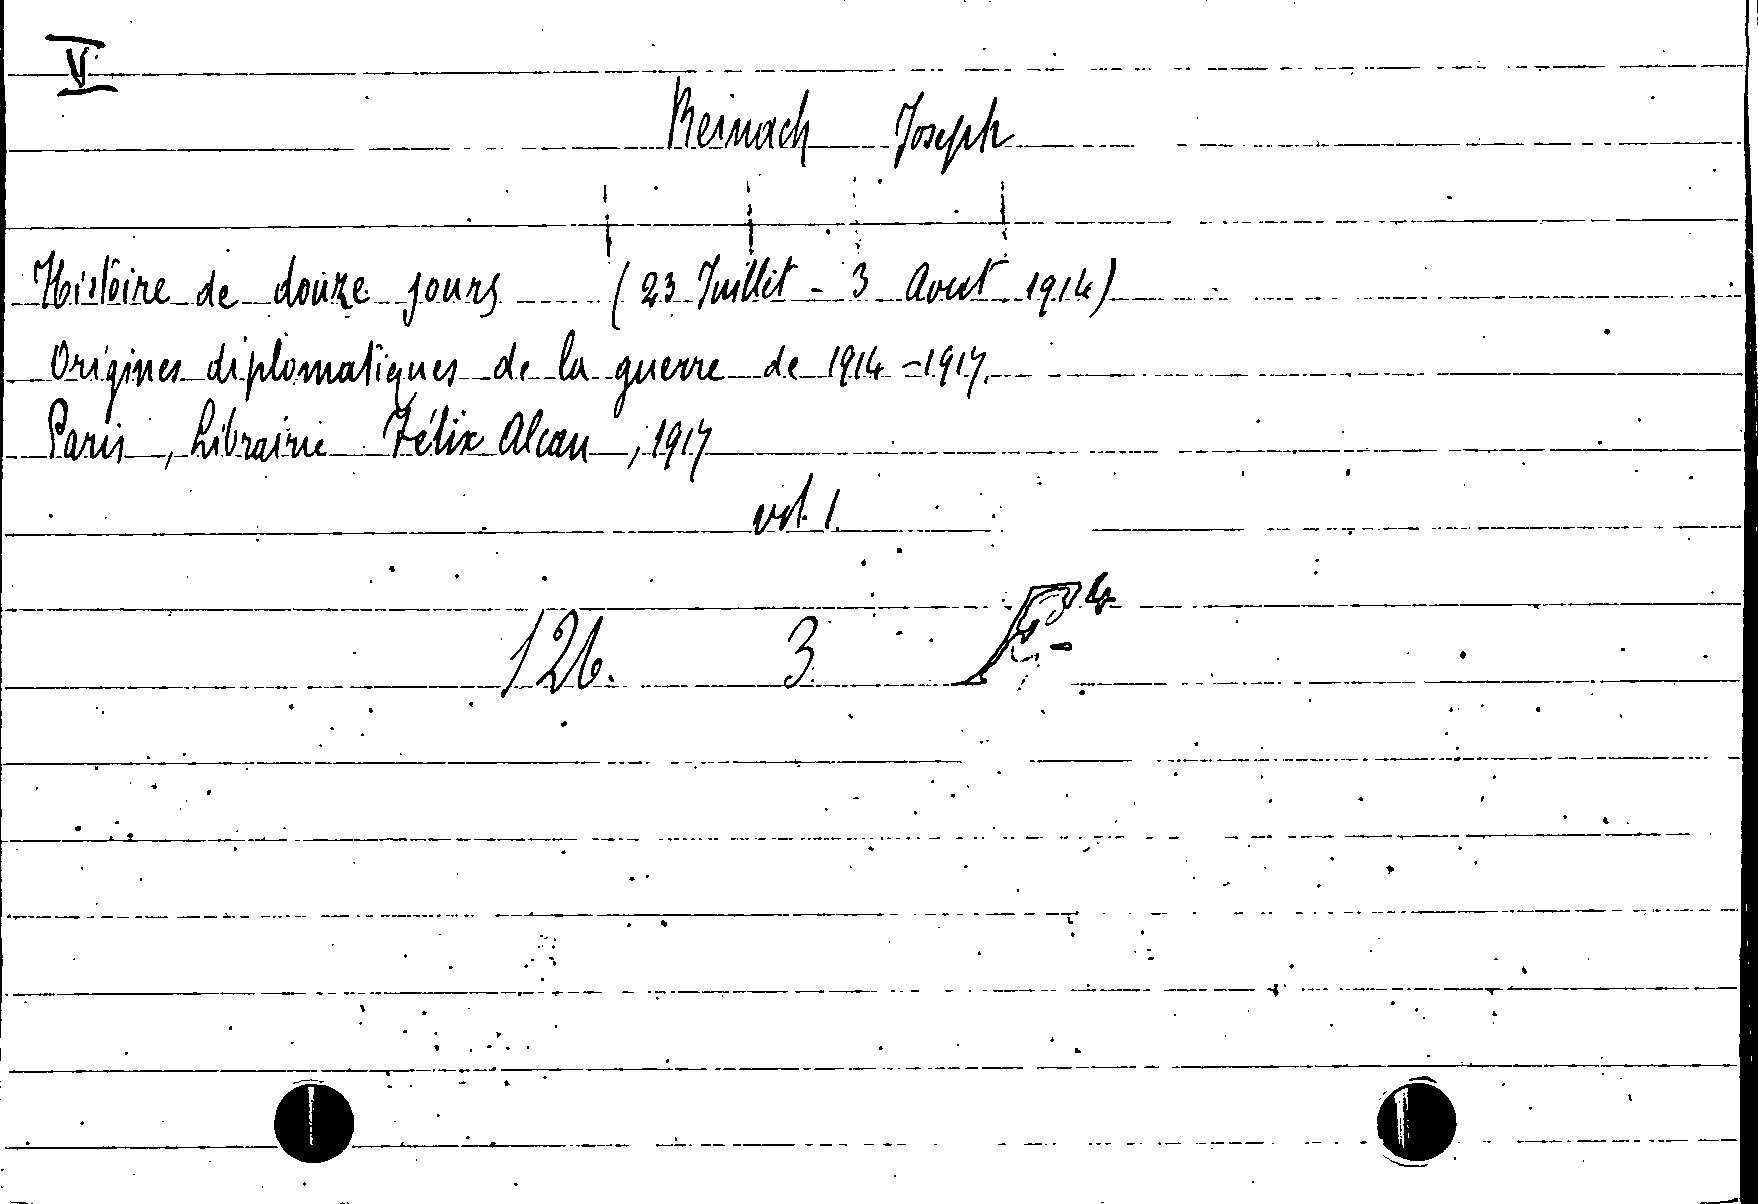 V
Reinach Joseph
Histoire de douze jours (23 Juillet - 3 Aout 1914)
Origines diplomatiques de la guerre de 1914-1917.
Paris, Librairie Félix Alcan, 1917
vol. 1.
126. 3. 4